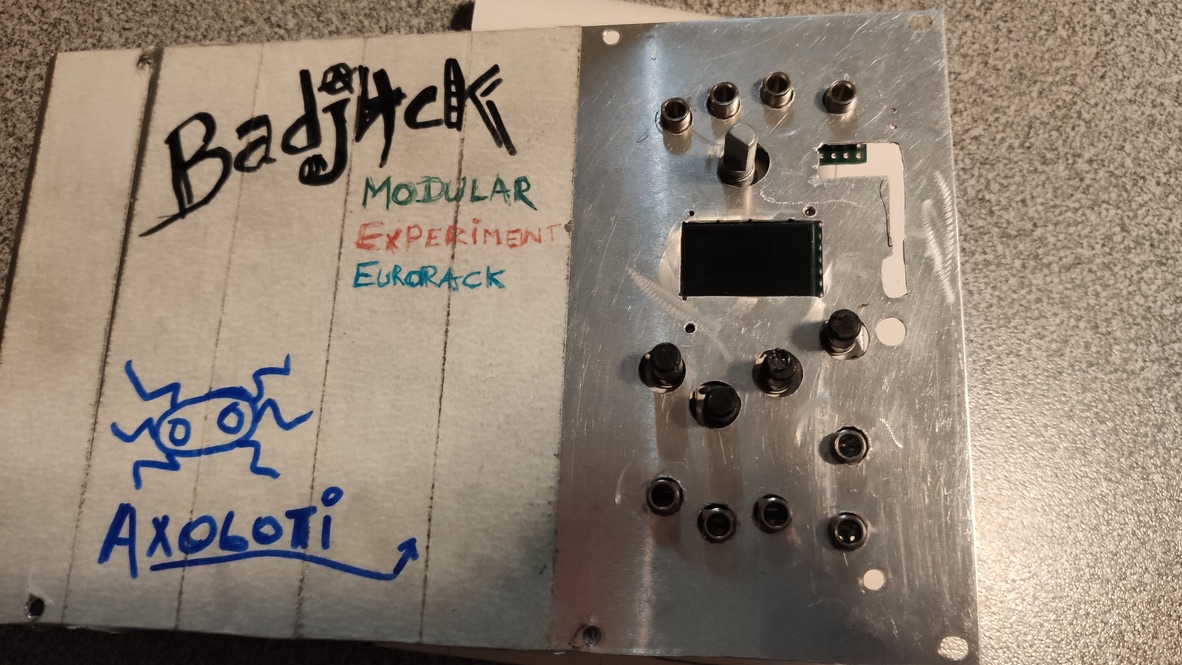 Badj4cK
MODULAR
EXPERIMENT
EURORACK
AXOLOTI